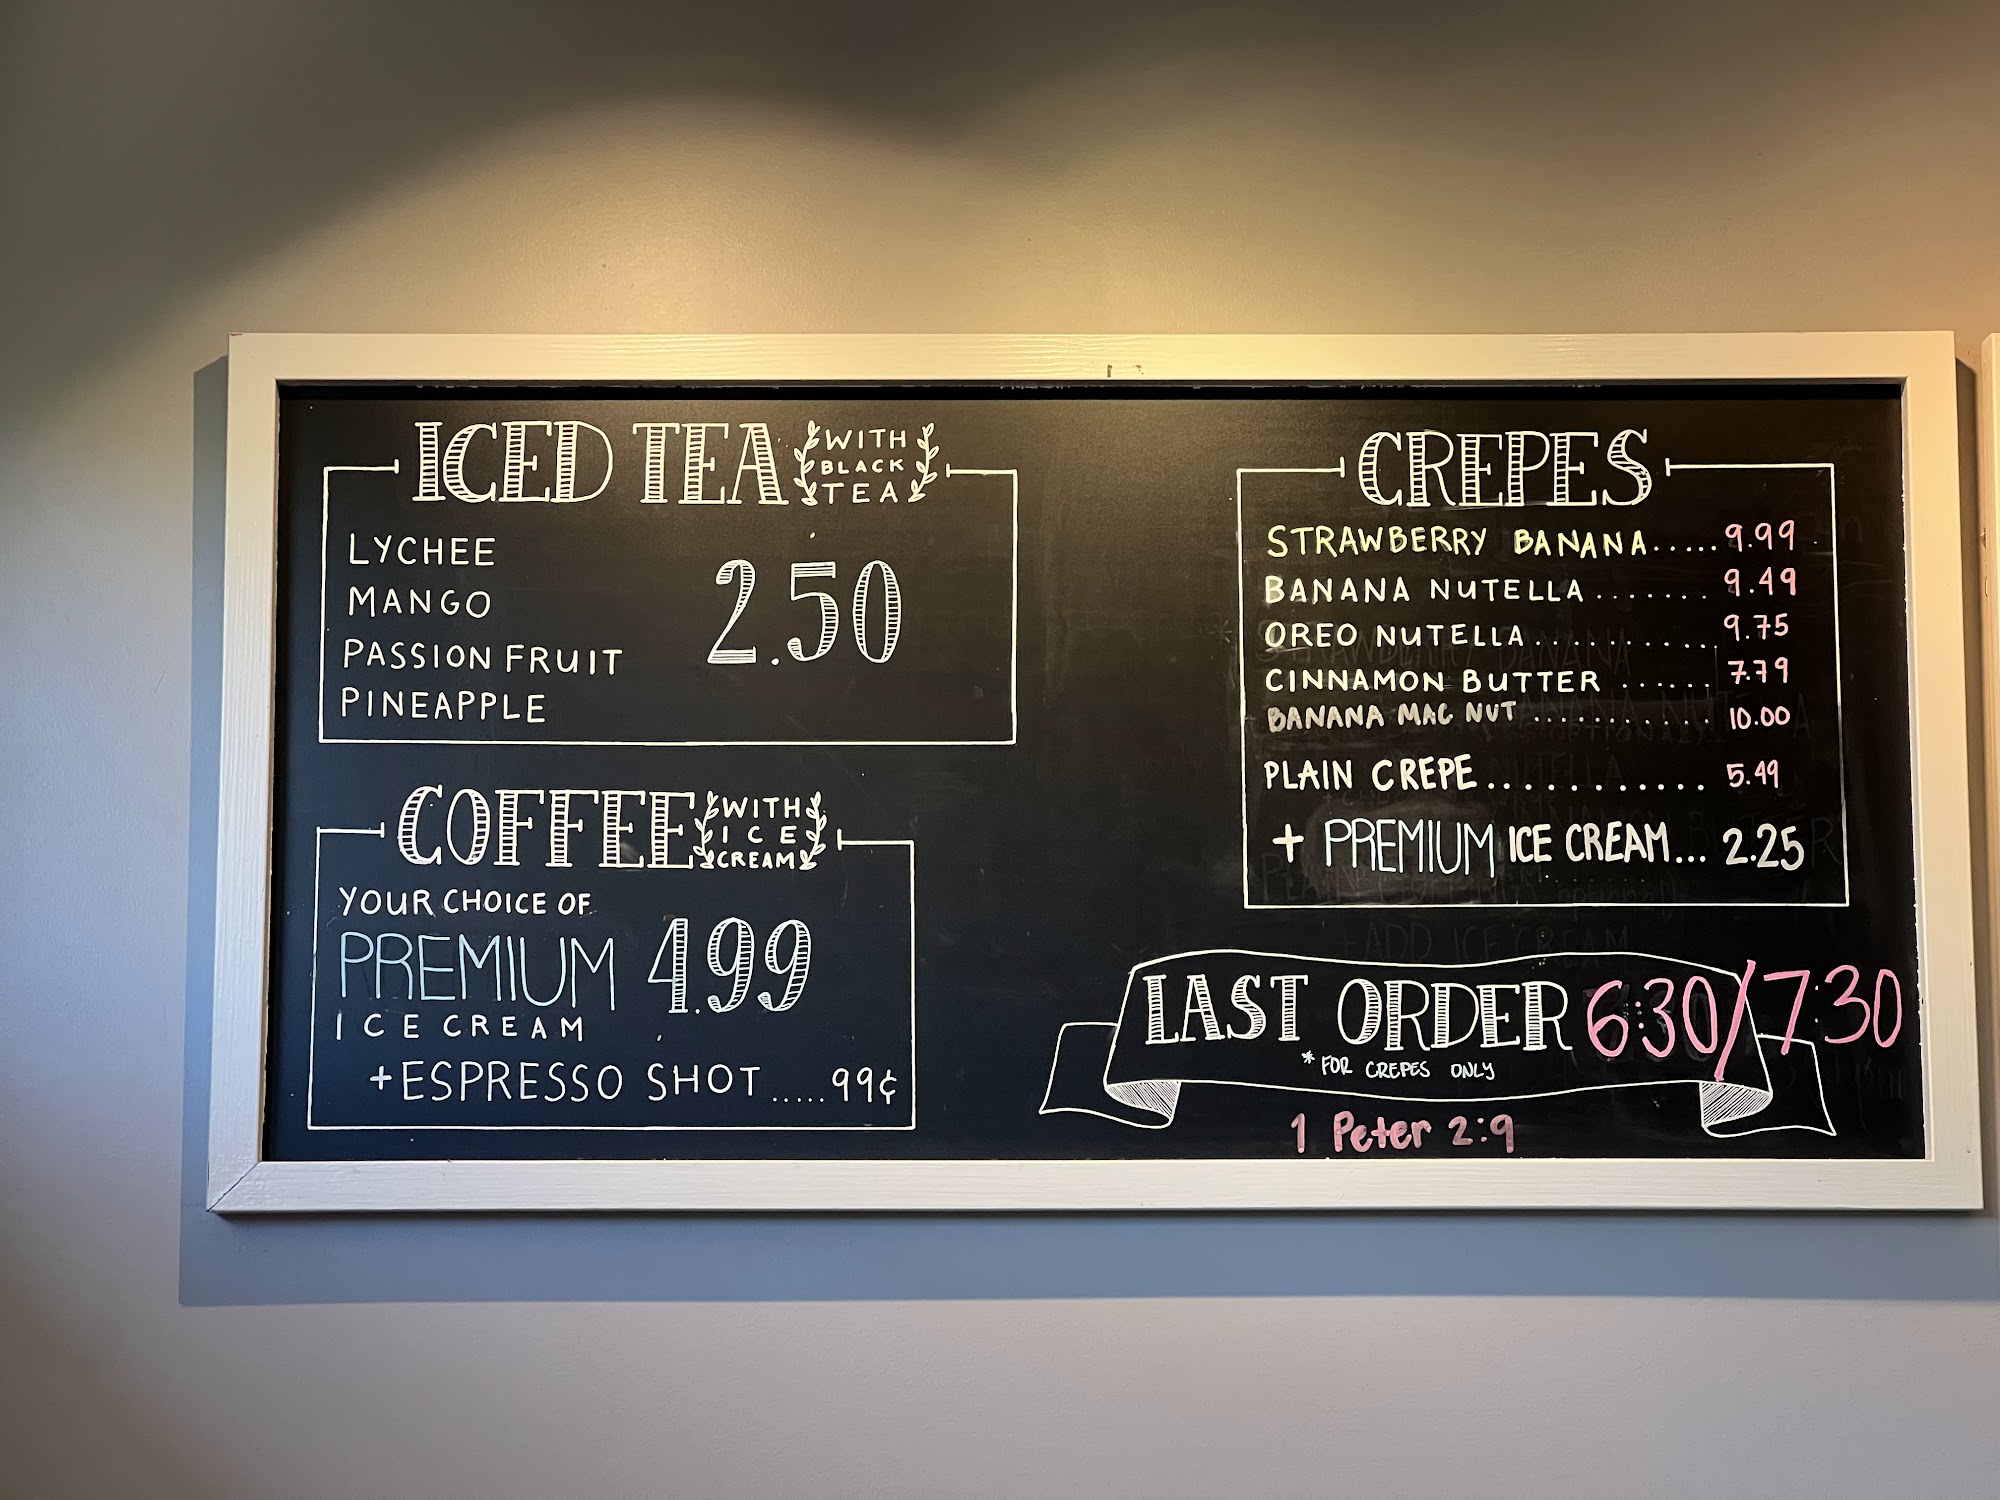 ICED TEA WITH BLACK TEA
LYCHEE
MANGO
PASSION FRUIT
PINEAPPLE
2.50
COFFEE WITH ICE CREAM
YOUR CHOICE OF
PREMIUM 4.99
ICE CREAM
+ESPRESSO SHOT .....99¢
CREPES
STRAWBERRY BANANA.....9.99
BANANA NUTELLA.......9.49
OREO NUTELLA..........9.75
CINNAMON BUTTER ......7.79
BANANA MAC NUT ...........10.00
PLAIN CREPE...........5.49
+ PREMIUM ICE CREAM...2.25
LAST ORDER 6:30/7:30
*FOR CREPES ONLY
1 Peter 2:9